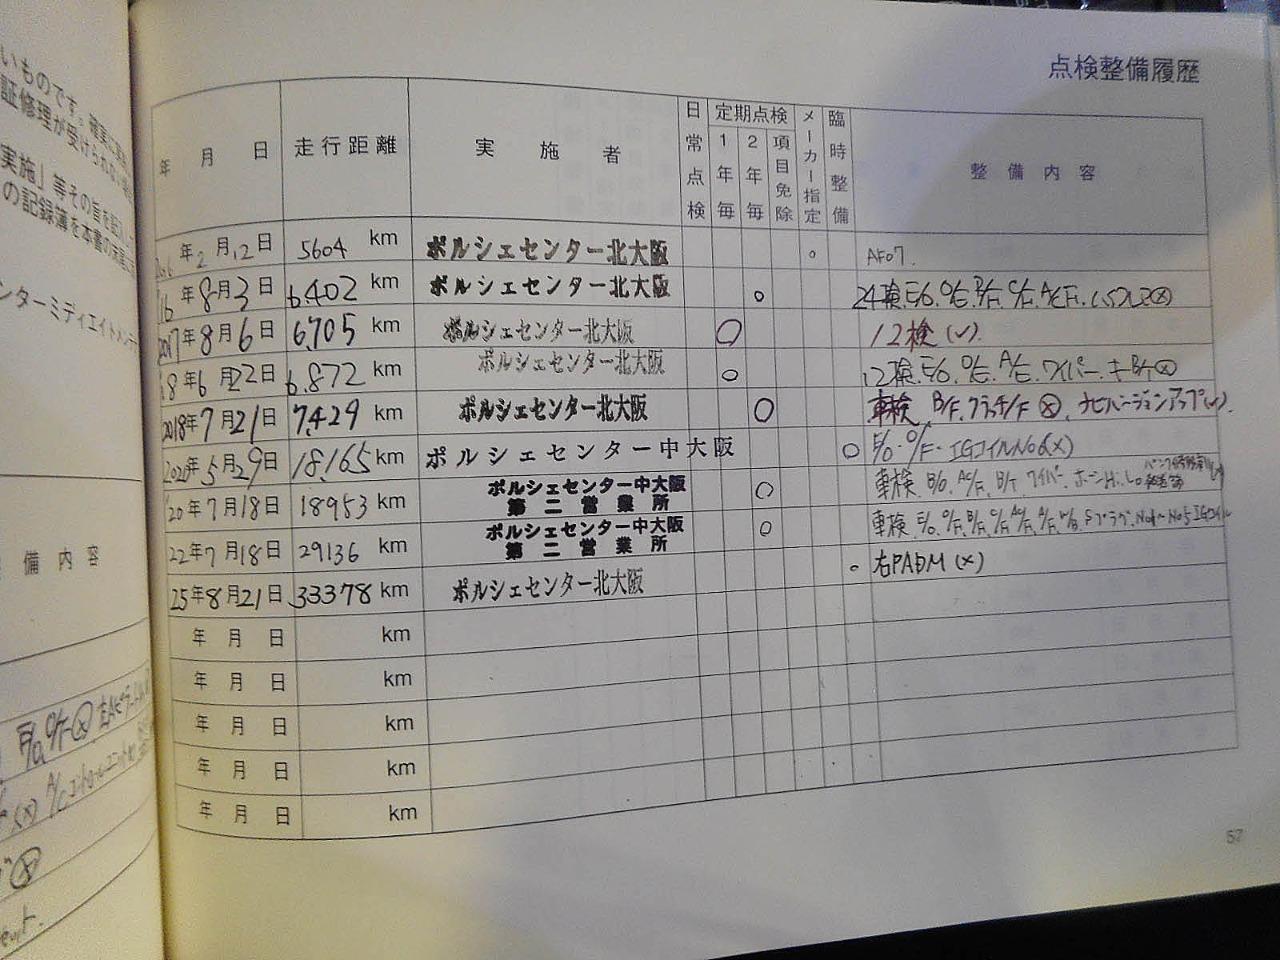 いものです。確実に実施
証修理が受けられない場合
実施」等その旨を記入し
の記録簿を本書の末尾に
ンターミディエイトメンテ
備内容
点検整備履歴
年 月 日 走行距離 実施者 日常点検 定期点検 1年毎 2年毎 項目免除 メーカー指定 臨時整備 整備内容
年2月12日 5604 km ポルシェセンター北大阪 ○ AF07.
16年8月3日 6402 km ポルシェセンター北大阪 ○ 24検.E/O.O/E.B/F.C/F.A/C F.
2017年8月6日 6,705 km ポルシェセンター北大阪 ○ 12検(レ).
18年6月22日 6,872 km ポルシェセンター北大阪 ○ 12検.E/O.O/E.A/E.ワイパー.キーB/T ⓧ
2018年7月21日 7,429 km ポルシェセンター北大阪 ○ 車検 B/F.クラッチ/F ⓧ.ナビバージョンアップ(レ).
2020年5月29日 18,165 km ポルシェセンター中大阪 ○ E/O・O/F・IGコイルNo6(X)
20年7月18日 18953 km ポルシェセンター中大阪 第二営業所 ○ 車検.E/O.A/F.B/T ワイパー.ホーンHi.Lo
22年7月18日 29136 km ポルシェセンター中大阪 第二営業所 ○ 車検.E/O.O/F.B/F.C/F.AC/F.A/F.W/B.Sプラグ.No1~No5 IGコイル
25年8月21日 33378 km ポルシェセンター北大阪 ○ 右PADM(X)
年 月 日 km
年 月 日 km
年 月 日 km
年 月 日 km
年 月 日 km
57